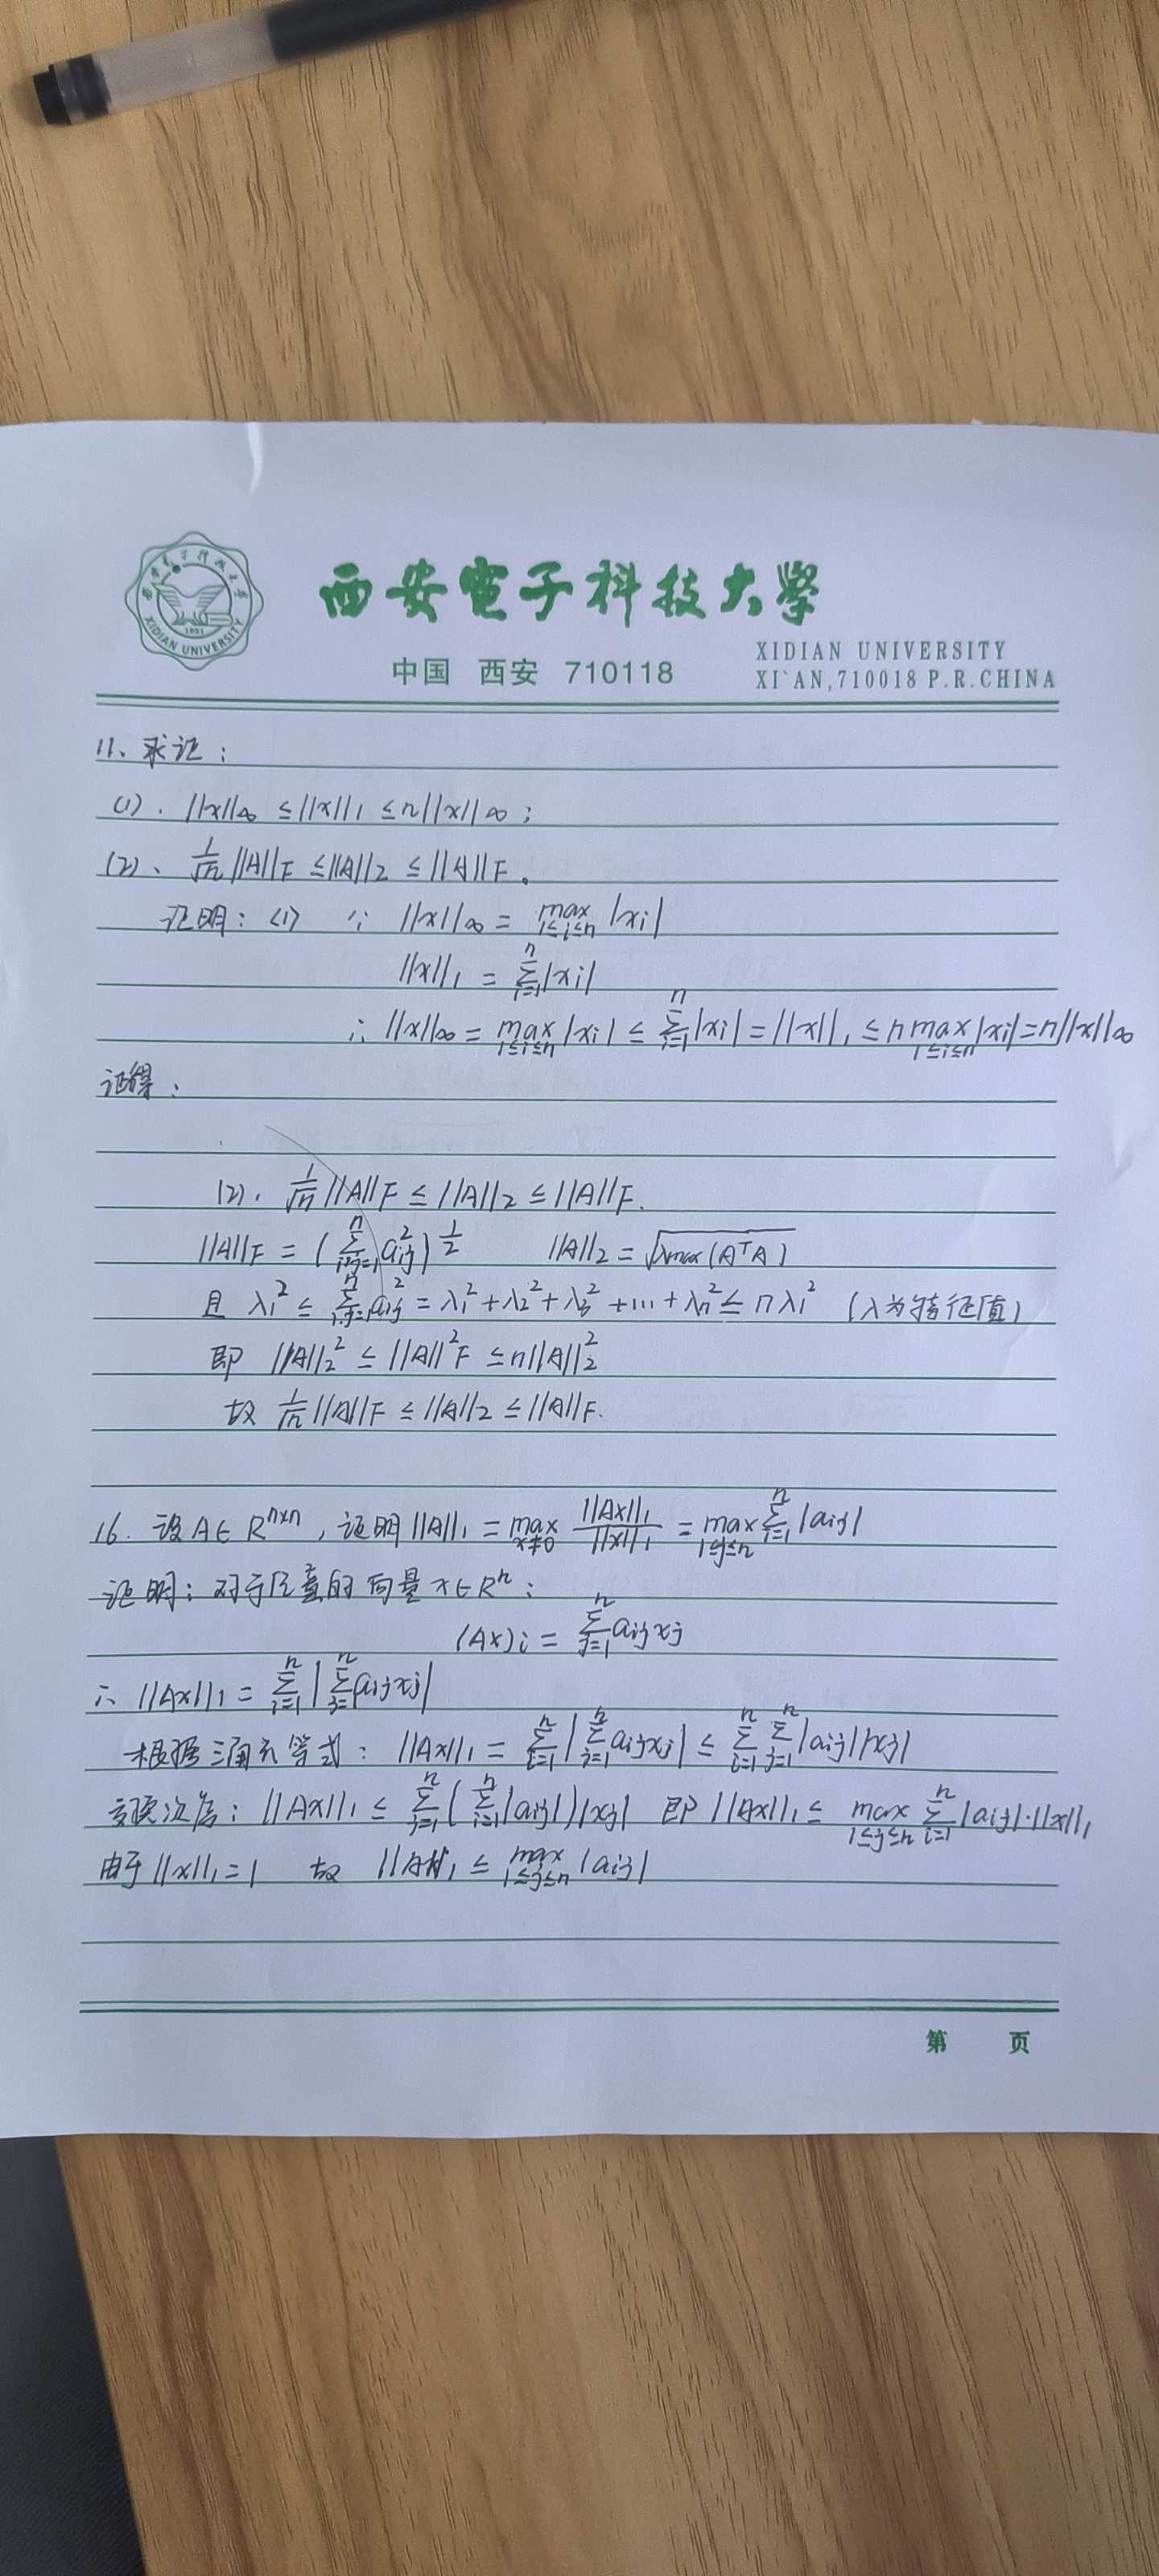 西安电子科技大学
XIDIAN UNIVERSITY
1931
中国 西安 710118
XIDIAN UNIVERSITY
XI`AN,710018 P.R.CHINA
11、求证：
(1). ||x||∞ ≤ ||x||₁ ≤ n||x||∞；
(2)、 1/√n ||A||F ≤ ||A||₂ ≤ ||A||F。
证明：(1) ∵ ||x||∞ = max_{1≤i≤n} |xi|
||x||₁ = Σ_{i=1}^{n} |xi|
∴ ||x||∞ = max_{1≤i≤n} |xi| ≤ Σ_{i=1}^{n} |xi| = ||x||₁ ≤ n max_{1≤i≤n} |xi| = n||x||∞
证得：
(2). 1/√n ||A||F ≤ ||A||₂ ≤ ||A||F.
||A||F = (Σ_{i,j=1}^{n} aij²)^{1/2} ||A||₂ = √(λmax(AᵀA))
且 λ₁² ≤ Σ_{i,j=1}^{n} aij² = λ₁² + λ₂² + λ₃² + … + λn² ≤ nλ₁² (λ为特征值)
即 ||A||₂² ≤ ||A||²F ≤ n||A||₂²
故 1/√n ||A||F ≤ ||A||₂ ≤ ||A||F.
16. 设A∈R^{n×n}, 证明||A||₁ = max_{x≠0} ||Ax||₁/||x||₁ = max_{1≤j≤n} Σ_{i=1}^{n} |aij|
证明：对于任意的向量x∈Rⁿ：
(Ax)i = Σ_{j=1}^{n} aijxj
∴ ||Ax||₁ = Σ_{i=1}^{n} |Σ_{j=1}^{n} aijxj|
根据三角不等式：||Ax||₁ = Σ_{i=1}^{n} |Σ_{j=1}^{n} aijxj| ≤ Σ_{i=1}^{n} Σ_{j=1}^{n} |aij||xj|
交换次序：||Ax||₁ ≤ Σ_{j=1}^{n} (Σ_{i=1}^{n} |aij|)|xj| 即||Ax||₁ ≤ max_{1≤j≤n} Σ_{i=1}^{n} |aij|·||x||₁
由于||x||₁=1 故 ||A||₁ ≤ max_{1≤j≤n} |aij|
第 页